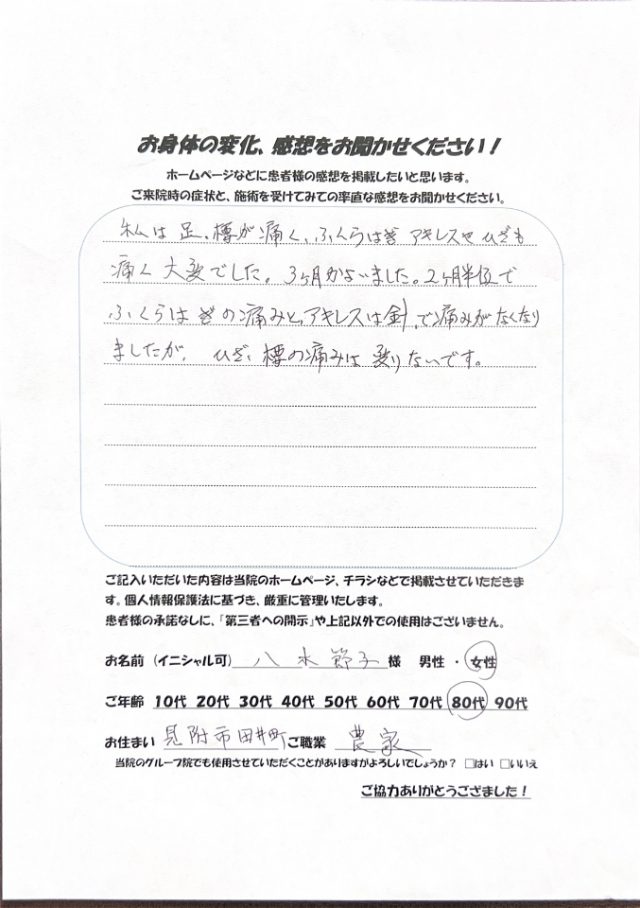 お身体の変化、感想をお聞かせください！
ホームページなどに患者様の感想を掲載したいと思います。
ご来院時の症状と、施術を受けてみての率直な感想をお聞かせください。
私は足、腰が痛く、ふくらはぎ アキレスやひざも
痛く大変でした。3ヶ月かよいました。2ヶ月半位で
ふくらはぎの痛みと、アキレスは針、で痛みがなくなり
ましたが、ひざ、腰の痛みは変りないです。
ご記入いただいた内容は当院のホームページ、チラシなどで掲載させていただきま
す。個人情報保護法に基づき、厳重に管理いたします。
患者様の承諾なしに、「第三者への開示」や上記以外での使用はございません。
お名前（イニシャル可）八木 節子 様 男性 ・ 女性
ご年齢 10代 20代 30代 40代 50代 60代 70代 80代 90代
お住まい 見附市田井町 ご職業 農家
当院のグループ院でも使用させていただくことがありますがよろしいでしょうか？ □はい □いいえ
ご協力ありがとうござました！